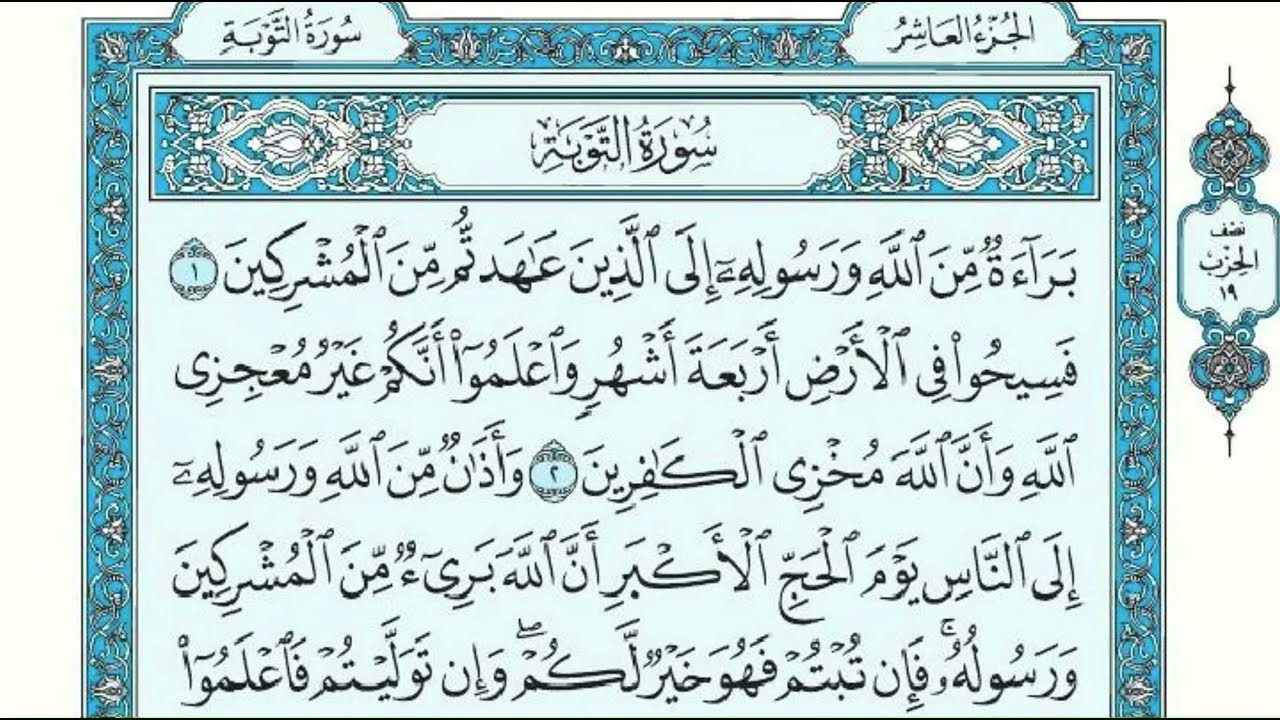 الجُزْءُ العَاشِرُ
سُورَةُ التَّوْبَةِ
سُورَةُ التَّوْبَةِ
بَرَآءَةٌ مِّنَ ٱللَّهِ وَرَسُولِهِۦٓ إِلَى ٱلَّذِينَ عَٰهَدتُّم مِّنَ ٱلْمُشْرِكِينَ ١
فَسِيحُوا۟ فِى ٱلْأَرْضِ أَرْبَعَةَ أَشْهُرٍ وَٱعْلَمُوٓا۟ أَنَّكُمْ غَيْرُ مُعْجِزِى
ٱللَّهِ وَأَنَّ ٱللَّهَ مُخْزِى ٱلْكَٰفِرِينَ ٢ وَأَذَٰنٌ مِّنَ ٱللَّهِ وَرَسُولِهِۦٓ
إِلَى ٱلنَّاسِ يَوْمَ ٱلْحَجِّ ٱلْأَكْبَرِ أَنَّ ٱللَّهَ بَرِىٓءٌ مِّنَ ٱلْمُشْرِكِينَ
وَرَسُولُهُۥ ۚ فَإِن تُبْتُمْ فَهُوَ خَيْرٌ لَّكُمْ ۖ وَإِن تَوَلَّيْتُمْ فَٱعْلَمُوٓا۟
نصف
الحزب
١٩